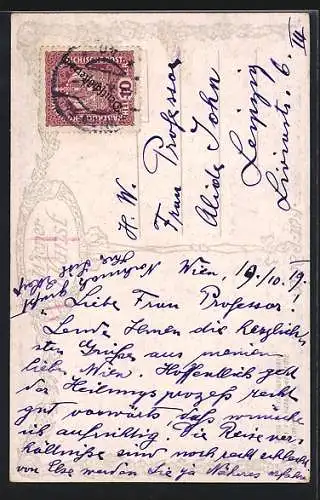 H. W.
Frau Professor
Alide John
Leipzig
6.
III
Wien, 19./10. 19.
Liebe Frau Professor!
Sende Ihnen die herzlich-
sten Grüße aus meinem
lieben Wien. Hoffentlich geht
der Heilungsprozeß recht
gut vorwärts, daß wünsche
ich aufrichtig. Die Reisever-
hältnisse sind noch recht schlecht
von Else werden Sie ja Näheres erfahren
Nochmals grüßt